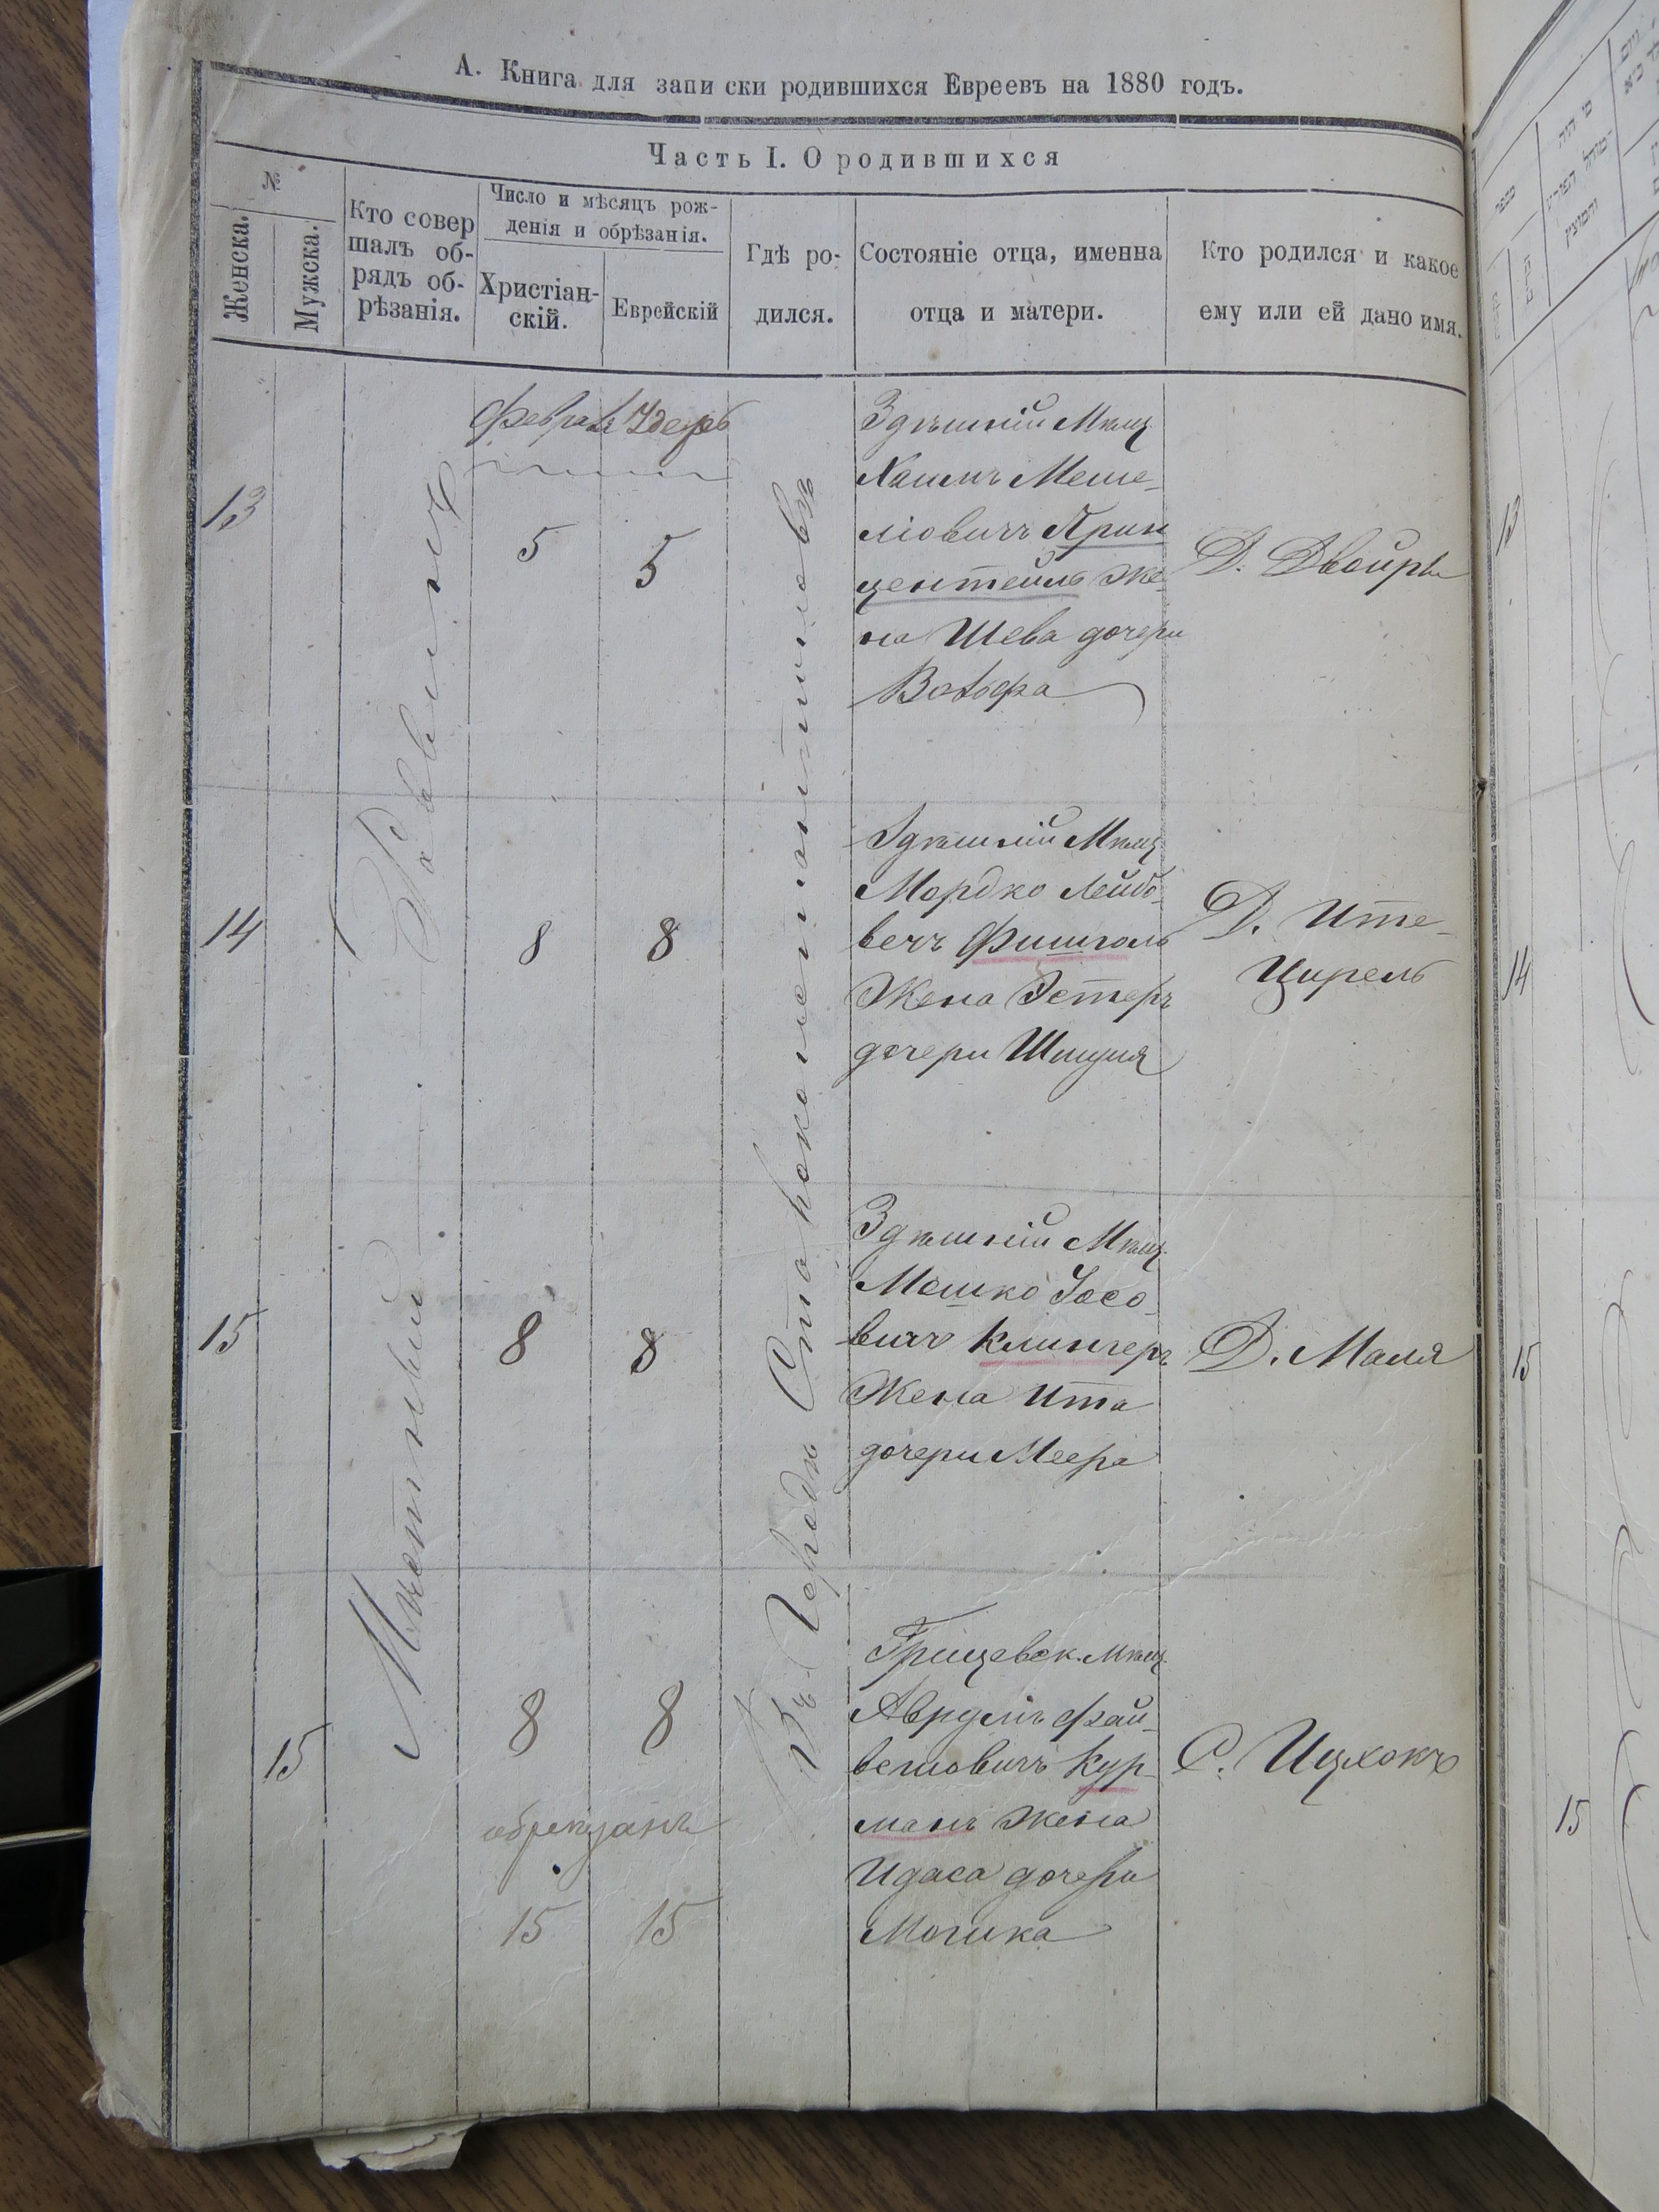 А. Книга для записки родившихся Евреевъ на 1880 годъ.
Часть I. О родившихся
№
Женска.
Мужска.
Кто совер
шалъ об-
рядъ об-
рѣзанія.
Число и мѣсяцъ рож-
денія и обрѣзанія.
Христіан-
скій.
Еврейскій
Гдѣ ро-
дился.
Состояніе отца, именна
отца и матери.
Кто родился и какое
ему или ей дано имя.
Мѣстный Раввинъ
Въ Городѣ Староконстантиновѣ
Февраля Удеръ
13
5
5
Здѣшній Мѣщ.
Хаимъ Меше-
ліовичъ Прин
центейль Же-
на Шева дочери
Вольфа
Д. Двойра
14
8
8
Здѣшній Мѣщ.
Мордко Лейбо-
вечъ Фишголь
Жена Эстеръ
дочери
Д. Ите-
Цирель
15
8
8
Здѣшній Мѣщ.
Мошко Іосо-
вичъ Клингеръ
Жена Ита
дочери Меера
Д. Маля
15
8
8
обрезанъ
15
15
Грицевск. Мѣщ.
Аврумъ Фай-
вешовичъ Кур-
манъ Жена
Идаса дочери
Мошка
С. Ицхокъ
13
14
15
15